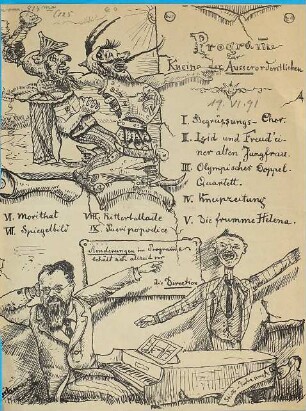 Programm
zur
Kneipe der Ausserordentlichen
19. VI. 91
I. Begrüssungs-Chor.
II. Leid und Freud' ei-
ner alten Jungfrau.
III. Olympisches Doppel-
Quartett.
IV. Kneipzeitung
V. Die fromme Helena.
VI. Morithat
VII. Spiegelbild
VIII. Ritterballade
IX.
Aenderungen im Programm
behält sich allezeit vor
Die Direction